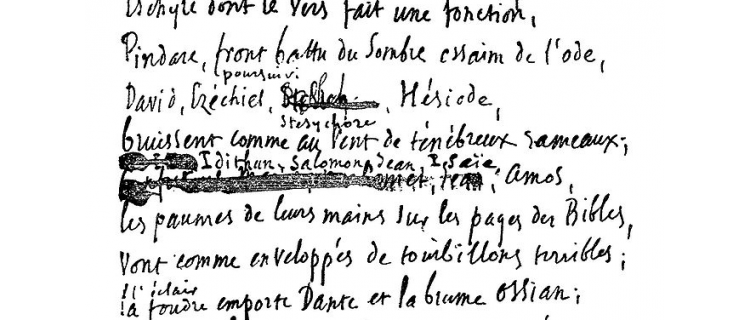 Eschyle dont le vers fait une fonction,
Pindare, front battu du sombre essaim de l'ode,
poursuivi
David, Ezéchiel, Hésiode,
Stésychore
bruissent comme au vent de ténébreux rameaux;
Idithun, Salomon, Jean, Isaïe,
Amos,
les paumes de leurs mains sur les pages des Bibles,
vont comme enveloppés de tourbillons terribles;
l'éclair
la foudre emporte Dante et la brume Ossian;